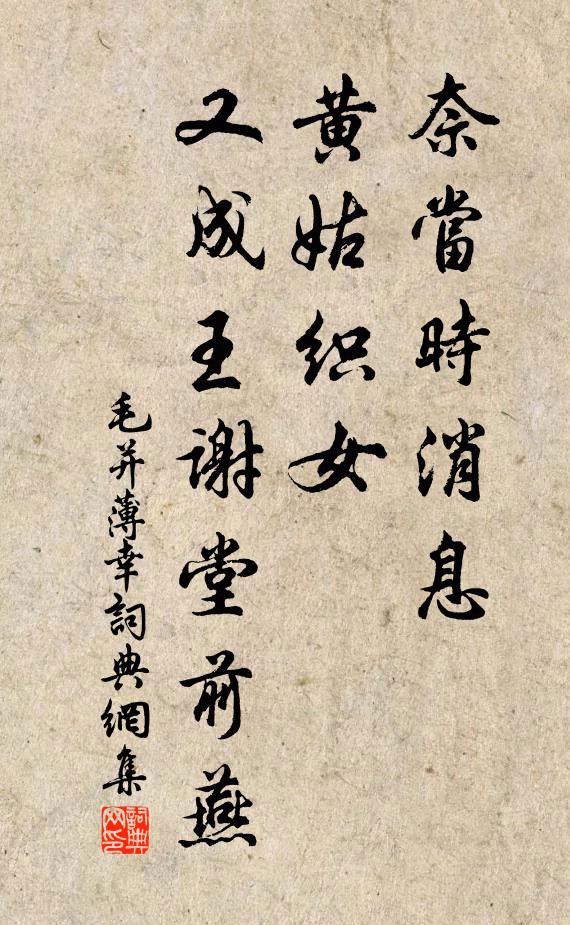 奈當時消息
黄姑织女
又成王谢堂前燕
毛并薄幸詞典網集
詞典
网印